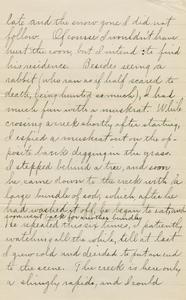 late and the snow gone I did not
follow. Of course I wouldn't have
hurt the coon, but I intend to find
his residence. Besides seeing a
rabbit (who ran as if half scared to
death, being hunted so much), I had
much fun with a muskrat. While
crossing a creek shortly after starting,
I espied a muskrat out on the op-
posite bank digging in the grass.
I stepped behind a tree, and soon
he came down to the creek with a
large bundle of sod, which, after he
had washed it off, he began to eat and
went back for another bundle
He repeated this six times, I patiently
watching all the while, till at last
I grew cold and decided to put an end
to the scene. The creek is here only
a shingly rapids, and I could